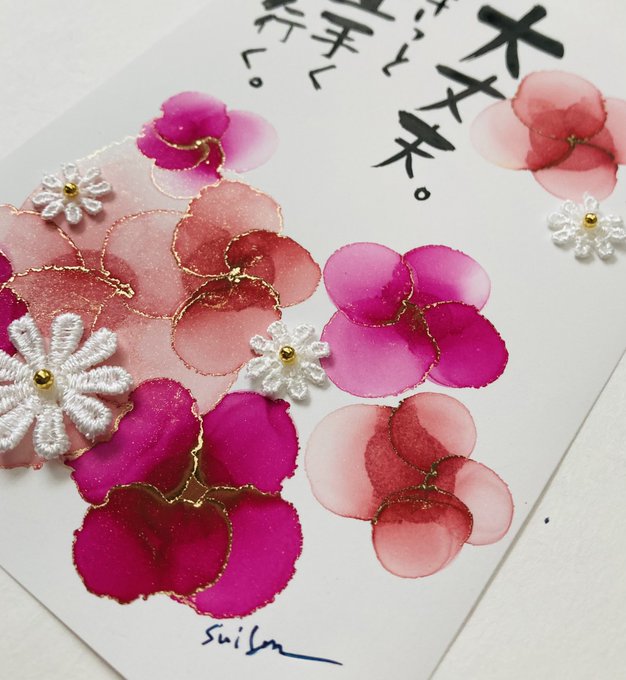 大丈夫。
きっと
上手く
行く。